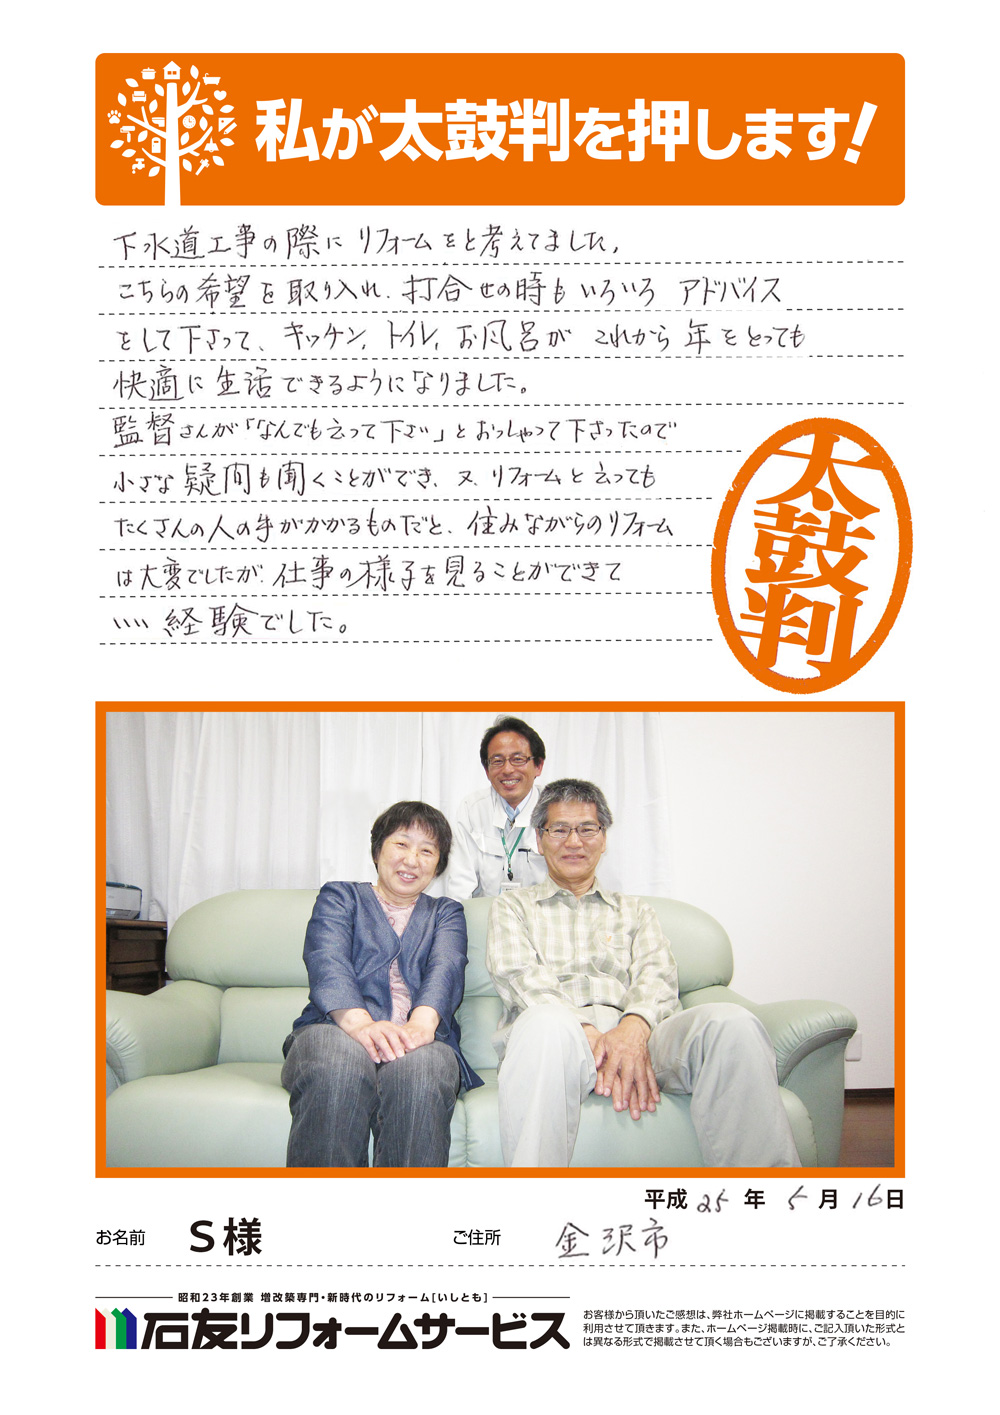 私が太鼓判を押します!
下水道工事の際に リフォームをと考えてました。
こちらの希望を取り入れ、打合せの時もいろいろ アドバイス
をして下さって、キッチン、トイレ、お風呂が これから年をとっても
快適に生活できるようになりました。
監督さんが「なんでも云って下さい」とおっしゃって下さったので
小さな疑問も聞くことができ、又、リフォームと云っても
たくさんの人の手がかかるものだと、住みながらのリフォーム
は大変でしたが、仕事の様子を見ることができて
いい経験でした。
太鼓判
平成 25 年 5 月 16 日
お名前 S様 ご住所 金沢市
昭和23年創業 増改築専門・新時代のリフォーム[いしとも]
石友リフォームサービス
お客様から頂いたご感想は、弊社ホームページに掲載することを目的に
利用させて頂きます。また、ホームページ掲載時に、ご記入頂いた形式と
は異なる形式で掲載させて頂く場合もございますが、ご了承ください。